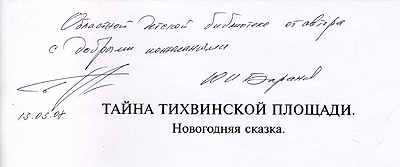 Областной детской библиотеке от автора
с добрыми пожеланиями
Ю И Баранов
13.03.08
ТАЙНА ТИХВИНСКОЙ ПЛОЩАДИ.
Новогодняя сказка.